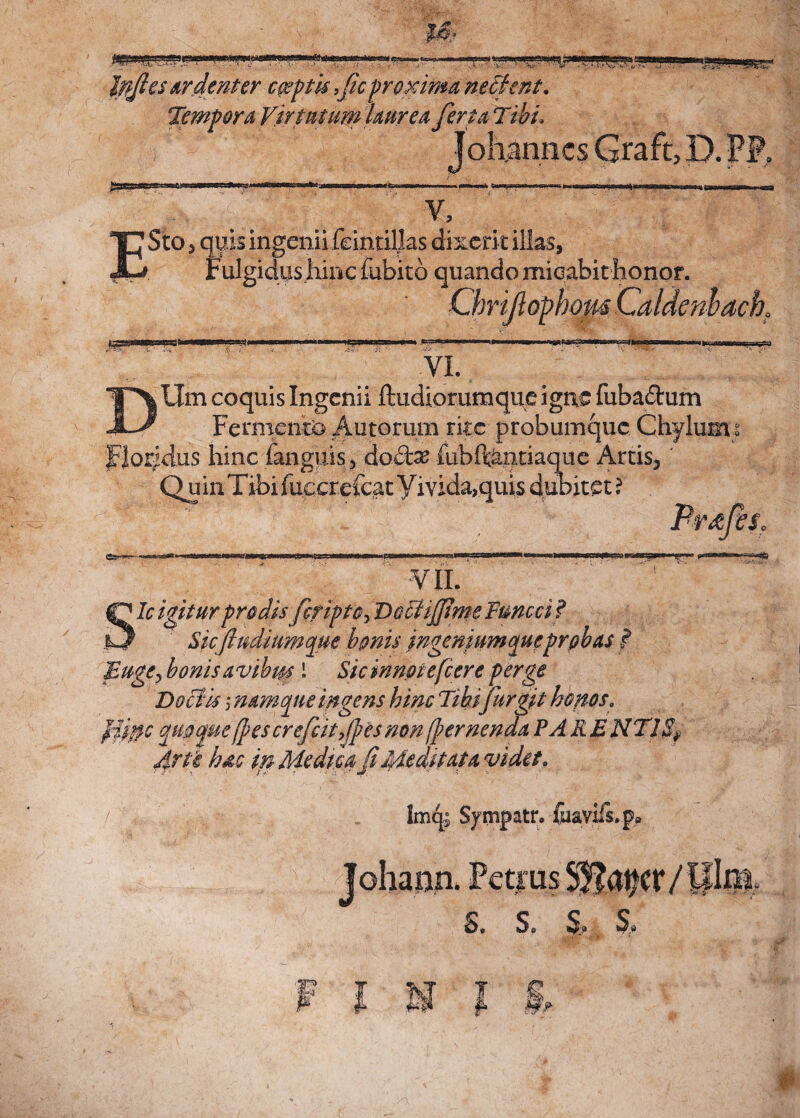 16.
Inſtes ardenter cœptis, ſic proxima nectent.
Tempora Virtutum laurea ſerta Tibi.
Johannes Graft, D. PP.
V,
ESto, quis ingenii ſcintillas dixerit illas,
Fulgidus hinc ſubitò quando micabit honor.
Chriſtophorus Caldenbach.
VI.
DUm coquis Ingenii ſtudiorumque igne ſubactum
Fermento Autorum rite probumque Chylum;
Floridus hinc ſanguis, doctæ ſubſtantiaque Artis,
Quin Tibi ſuccreſcat Vivida, quis dubitet?
Præſes.
VII.
SIc igitur prodis ſcripto, Doctiſſime Buncci?
Sic ſtudiumque bonis ingeniumque probas?
Euge, bonis avibus! Sic innoteſcere perge
Doctis; namque ingens hinc Tibi ſurgit honos.
Hinc quoque ſpes creſcit, ſpes non ſpernenda PARENTIS,
Arte hac in Medica ſi Meditata videt.
Imq; Sympatr. ſuaviſs. p.
Johann. Petrus Mayer / Ulm.
S. S. S. S.
FINIS.